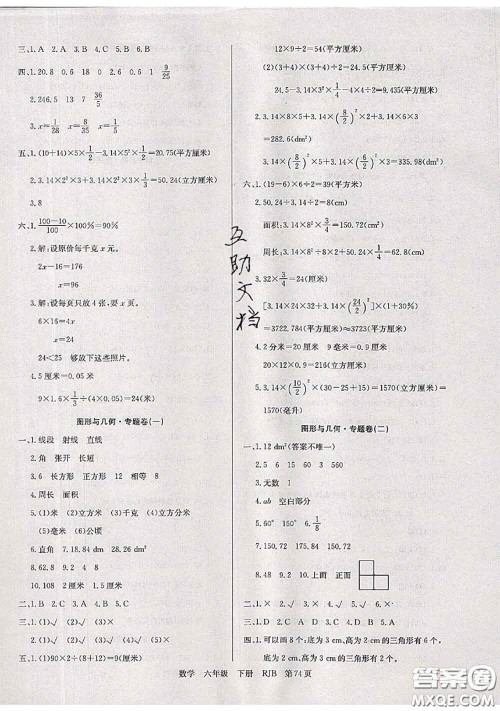 三、1. A　2. A　3. A　4. A　5. B
四、1. 20.8　0.6　18　0　1　9/25
2. 246.5　13　7　36/5
3. x=1/28　x=8/35　x=8
五、1. (10+14)×5×1/2-3.14×5²×1/2=20.75(平方厘米)
2. 3.14×2²×3+3.14×2²×3×1/3=50.24(立方厘米)
3. 8
六、1. (100-10)/100×100%=90%
2. 解：设原价每千克x元。
2x-16=176
x=96
3. 解：设每页只放4张，要x页。
6×16=4x
x=24
24<25　够放下这些照片。
4. 5厘米=0.05米
9×1.6×1/3÷(4×0.05)=24(米)
图形与几何·专题卷(一)
一、1. 线段　射线　直线
2. 角　张开　长短
3. 6　长方形　正方形　12　相等
4. 周长　面积
5. (1)厘米　(2)立方米　(3)千克　(4)立方分米
(5)毫米　(6)公顷
6. 直角　7. 18.84 dm　28.26 dm²
8. 62.8　9. 2　4　8
10. 108　2厘米　1.5厘米
二、1. B　2. C　3. A　4. B　5. C
三、1. (1)√　(2)×　(3)√　(4)×
2. (1)√　(2)√　(3)×　(4)√
四、1. (1)50.24厘米
12×9÷2=54(平方厘米)
(2)(3+4)×(3+4)÷2=24.5(平方厘米)
24.5-3.14×3²×1/4-4×4÷2=9.435(平方厘米)
2. 3.14×8×5+3.14×(8/2)²×2+3.14×2×3=
282.6(dm²)
3.14×(8/2)²×5+3.14×(6/2)²×3=335.98(dm³)
六、1. (19-6)×6÷2=39(平方米)
2. 周长：
面积：
3. 32×3/4=24(厘米)
[3.14×24×32+3.14×(24/2)²]×(1+30%)
=3722.784(平方厘米)≈3723(平方厘米)
4. 2分米=20厘米　9毫米=0.9厘米
20×12×0.9=216(立方厘米)
5. 3.14×(10/2)²×(30-25+15)=1570(立方厘米)=
1570(毫升)
图形与几何·专题卷(二)
一、1. 12 dm²(答案不唯一)
2. 5　6　15　56　60
3. 无数　1
4. ab　空白部分
5. 60°　150°　6. 1/8
7. 150.72　75.36　150.72
8. 48　9. 12　10. 上面　正面
二、1. B　2. D　3. C　4. B　5. B
三、1. ×　2. √　3. √　4. ×　5. √
四、1. 可以画8个：底为3 cm,高为2 cm的三角形有6个,
底为2 cm,高为3 cm的三角形有2个。
互助文档
数学　六年级　下册　RJB　第74页
答案圈
MXQE.COM